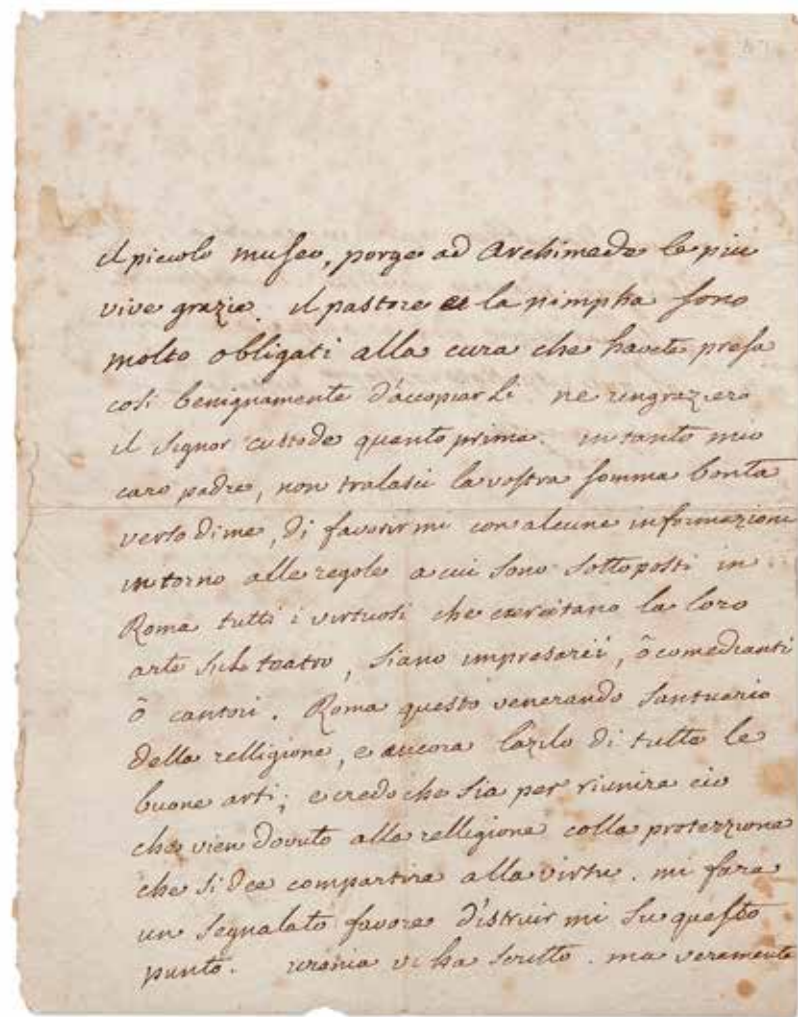 il piccolo museo, porge ad Archimede le piu
vive grazie. il pastore e la nimpha sono
molto obligati alla cura che havete presa
cosi benignamente d'accopiarli ne ringraziero
il signor custode quanto prima. in tanto mio
caro padre, non tralasci la vostra somma bonta
verso di me, di favorirmi con alcune informazioni
intorno alle regole a cui sono sottoposti in
Roma tutti i virtuosi che exercitano la loro
arte sul teatro, siano impresarii, ô comedianti
ô cantori. Roma questo venerando santuario
della relligione, e ancora lazilo di tutte le
buone arti; e credo che sia per riunire cio
che vien dovuto alla relligione colla protezzione
che si dee compartire alla virtu. mi fara
un segnalato favore d'istruirmi su questo
punto. urania vi ha scritto. ma veramente